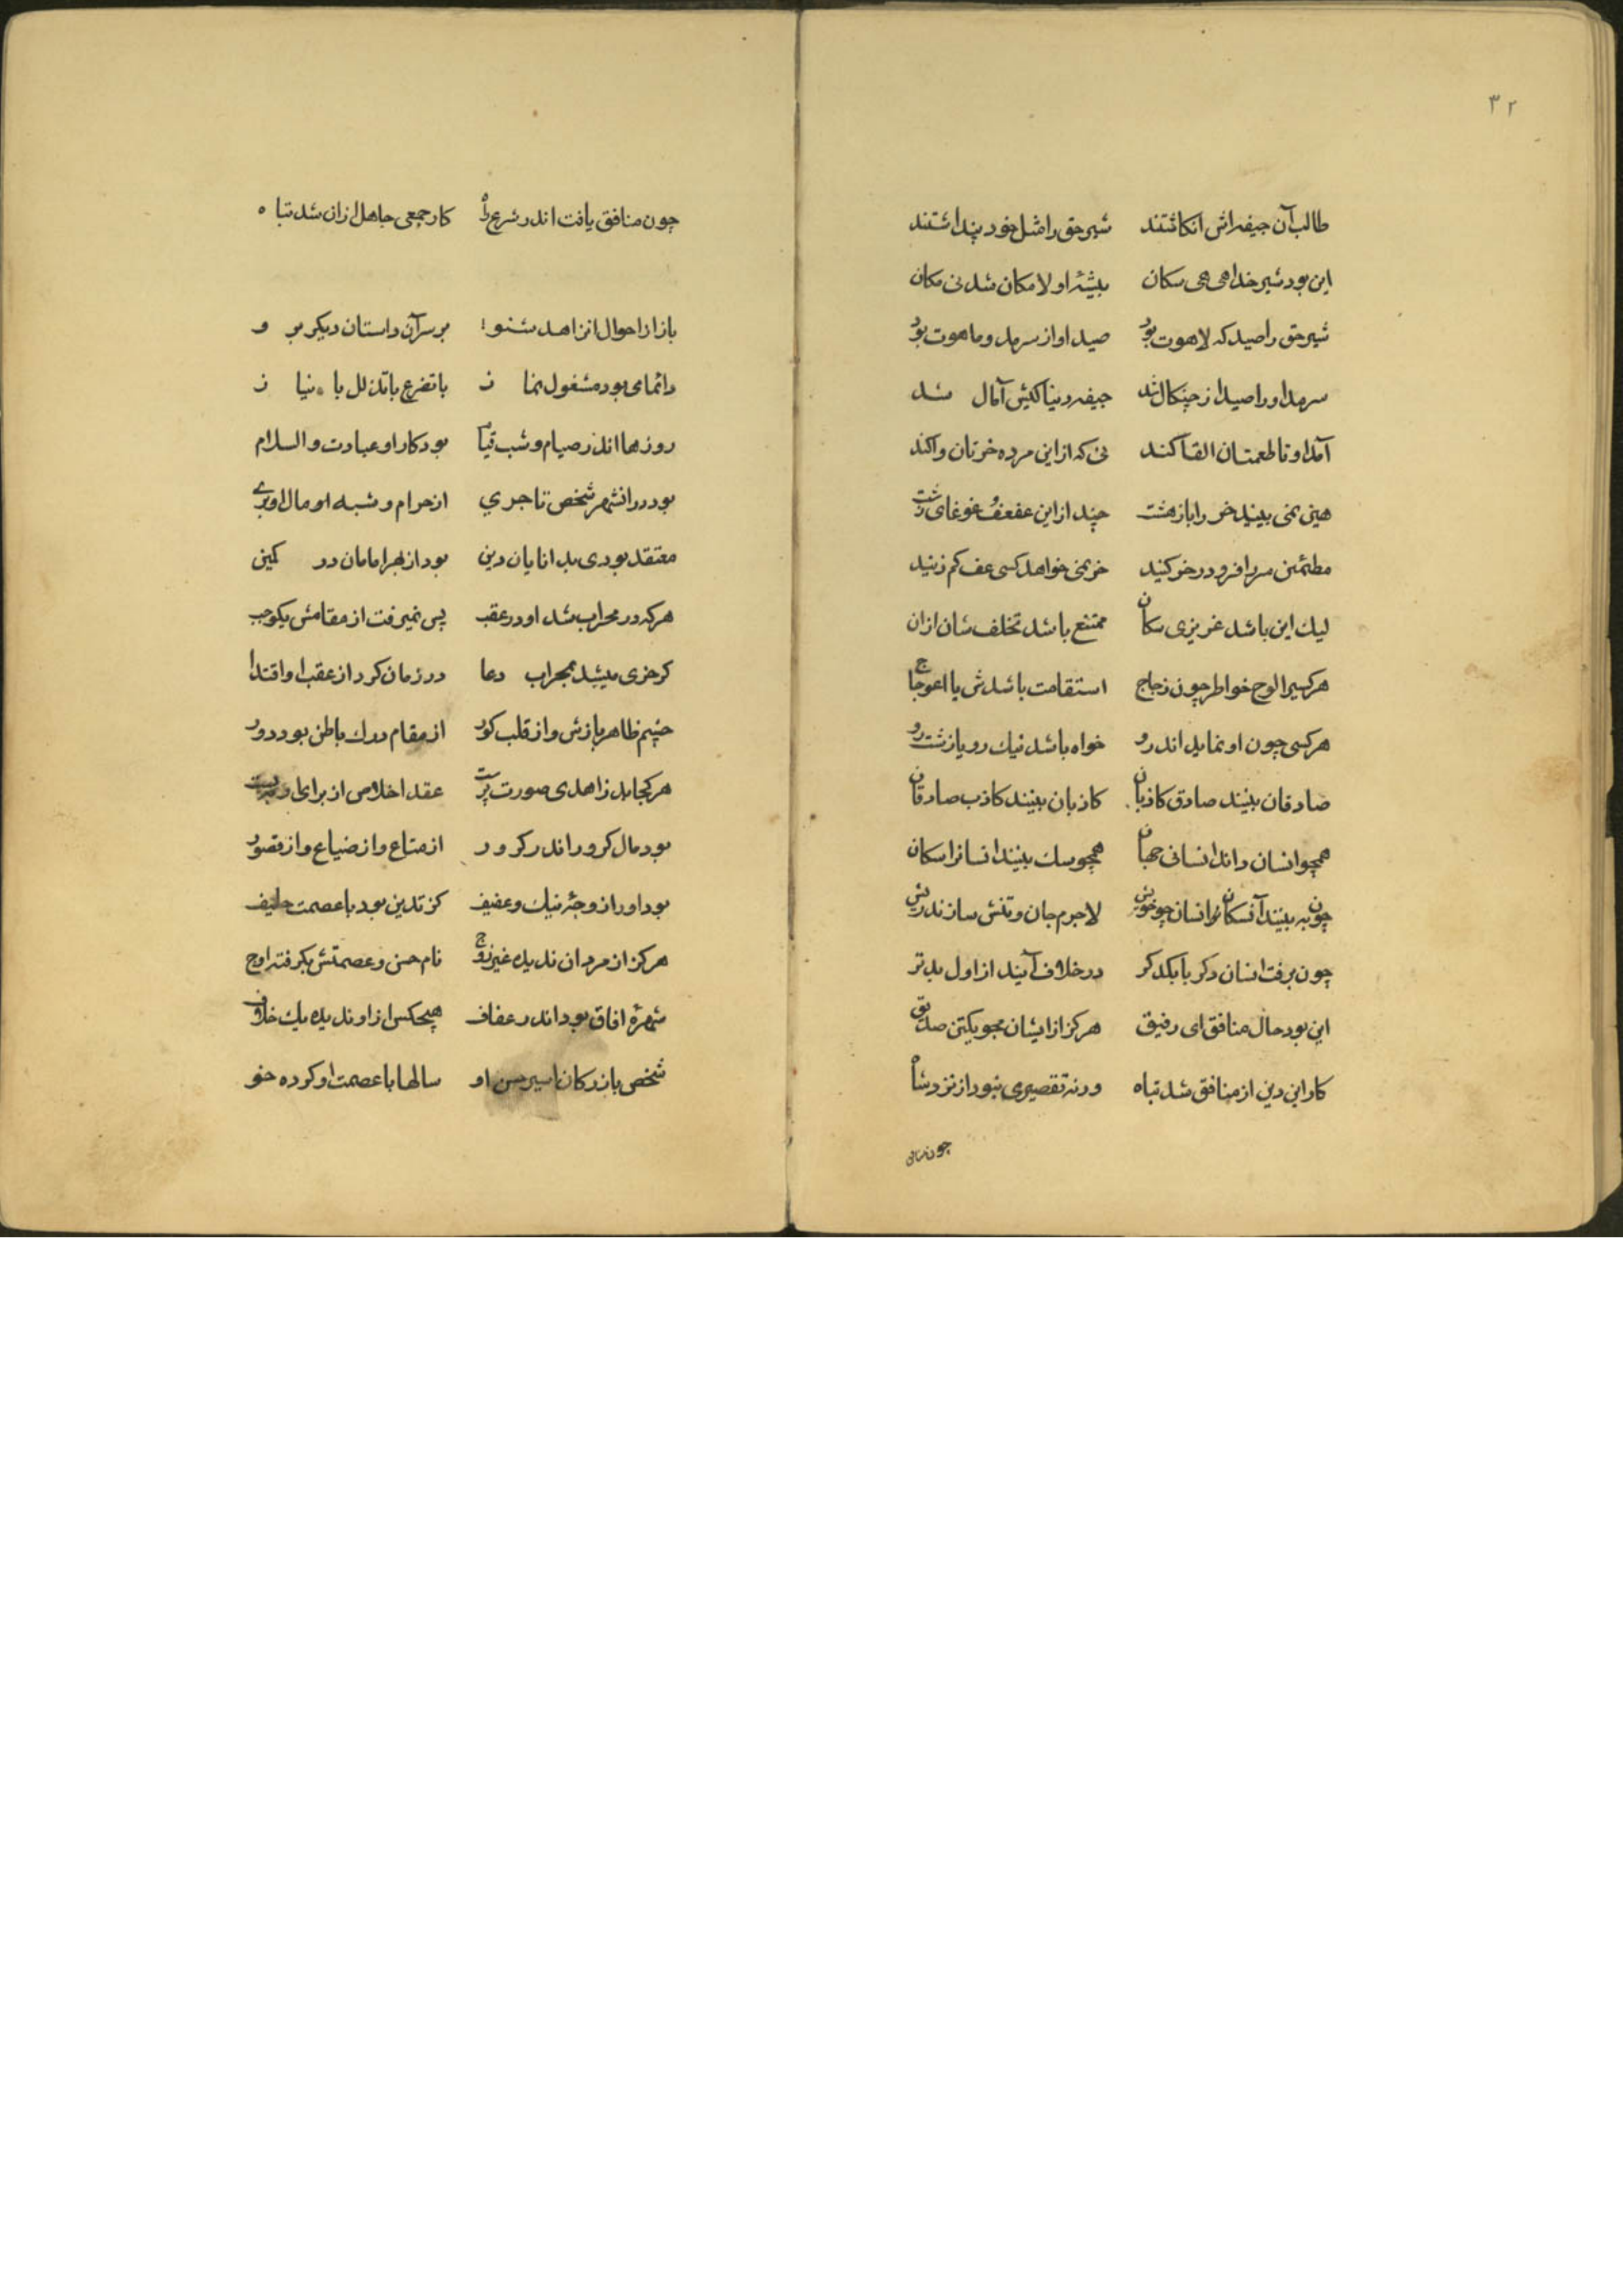 ۳۲
طالب آن جیفه اش انکاشتند شیر حق را مثل خود پنداشتند
این بود شیر خدا هی هی سکان بیشهٔ او لامکان شد نی مکان
شیر حق را صید که لاهوت بود صید او از سرمد و ماهوت بود
سرمد او را صید از چنکال شد جیفه دنیا کیش آمال شد
آمد او تا طعمتان القا کند نی که از این مرده خرتان واکند
هین نمی بیند خر را باز هشت چند از این عفعف و غوغای زشت
مطمئن سر را فرو در خر کنید خر نمی خواهد کسی عف کم زنید
لیك این باشد غریزی سکان ممتنع باشد تخلف شان ازان
هر کسیرا لوح خواطر چون زجاج استقامت باشدش یا اعوجاج
هر کسی چون او نماید اندرو خواه باشد نیك رو یا زشت رو
صادقان بینند صادق کاذبان کاذبان بینند کاذب صادقان
همچو انسان داند انسانی جهان همچو سك بینند انسانرا سکان
چون به بینند آنسکان انسان چو خویش لاجرم جان و تنش سازند ریش
چون برفت انسان دکر با یکدکر در خلاف آیند از اول بدتر
این بود حال منافق ای رفیق هرکز از ایشان مجو یکتن صدیق
کار این دین از منافق شد تباه ورنه تقصیری نبود از نزد شاه
چون منافق
چون منافق یافت اندر شرع راه کار جمعی جاهل ازان شد تباه
باز از احوال انزاهد شنو بر سر آن داستان دیکر برو
دائمای بود مشغول نماز با تضرع با تذلل با نیاز
روزها اندر صیام و شب قیام بود کار او عبادت والسلام
بود در انشهر شخص تاجری از حرام و شبه او مال او بری
معتقد بودی بدانایان دین بود از بهر امامان در کمین
هرکه در محراب شد او در عقب پس نمیرفت از مقامش یکوجب
کر خری میشد بمحراب دعا در زمان کرد از عقب او اقتدا
چشم ظاهر بازش و از قلب کور از مقام درك باطن بود دور
هر کجا بد زاهدی صورت پرست عقد اخلاص از برای او ببست
بود مال کرور اندر کرور از متاع و از ضیاع و از قصور
بود او را زوجهٔ نیك و عفیف کز تدین بود با عصمت حلیف
هرکز از مردان ندیده غیر زوج نام حسن و عصمتش بکرفته اوج
شهرهٔ افاق بود اندر عفاف هیچکس از او ندیده یك خلاف
شخص بازرکان اسیر حسن او سالها با عصمت او کرده خو